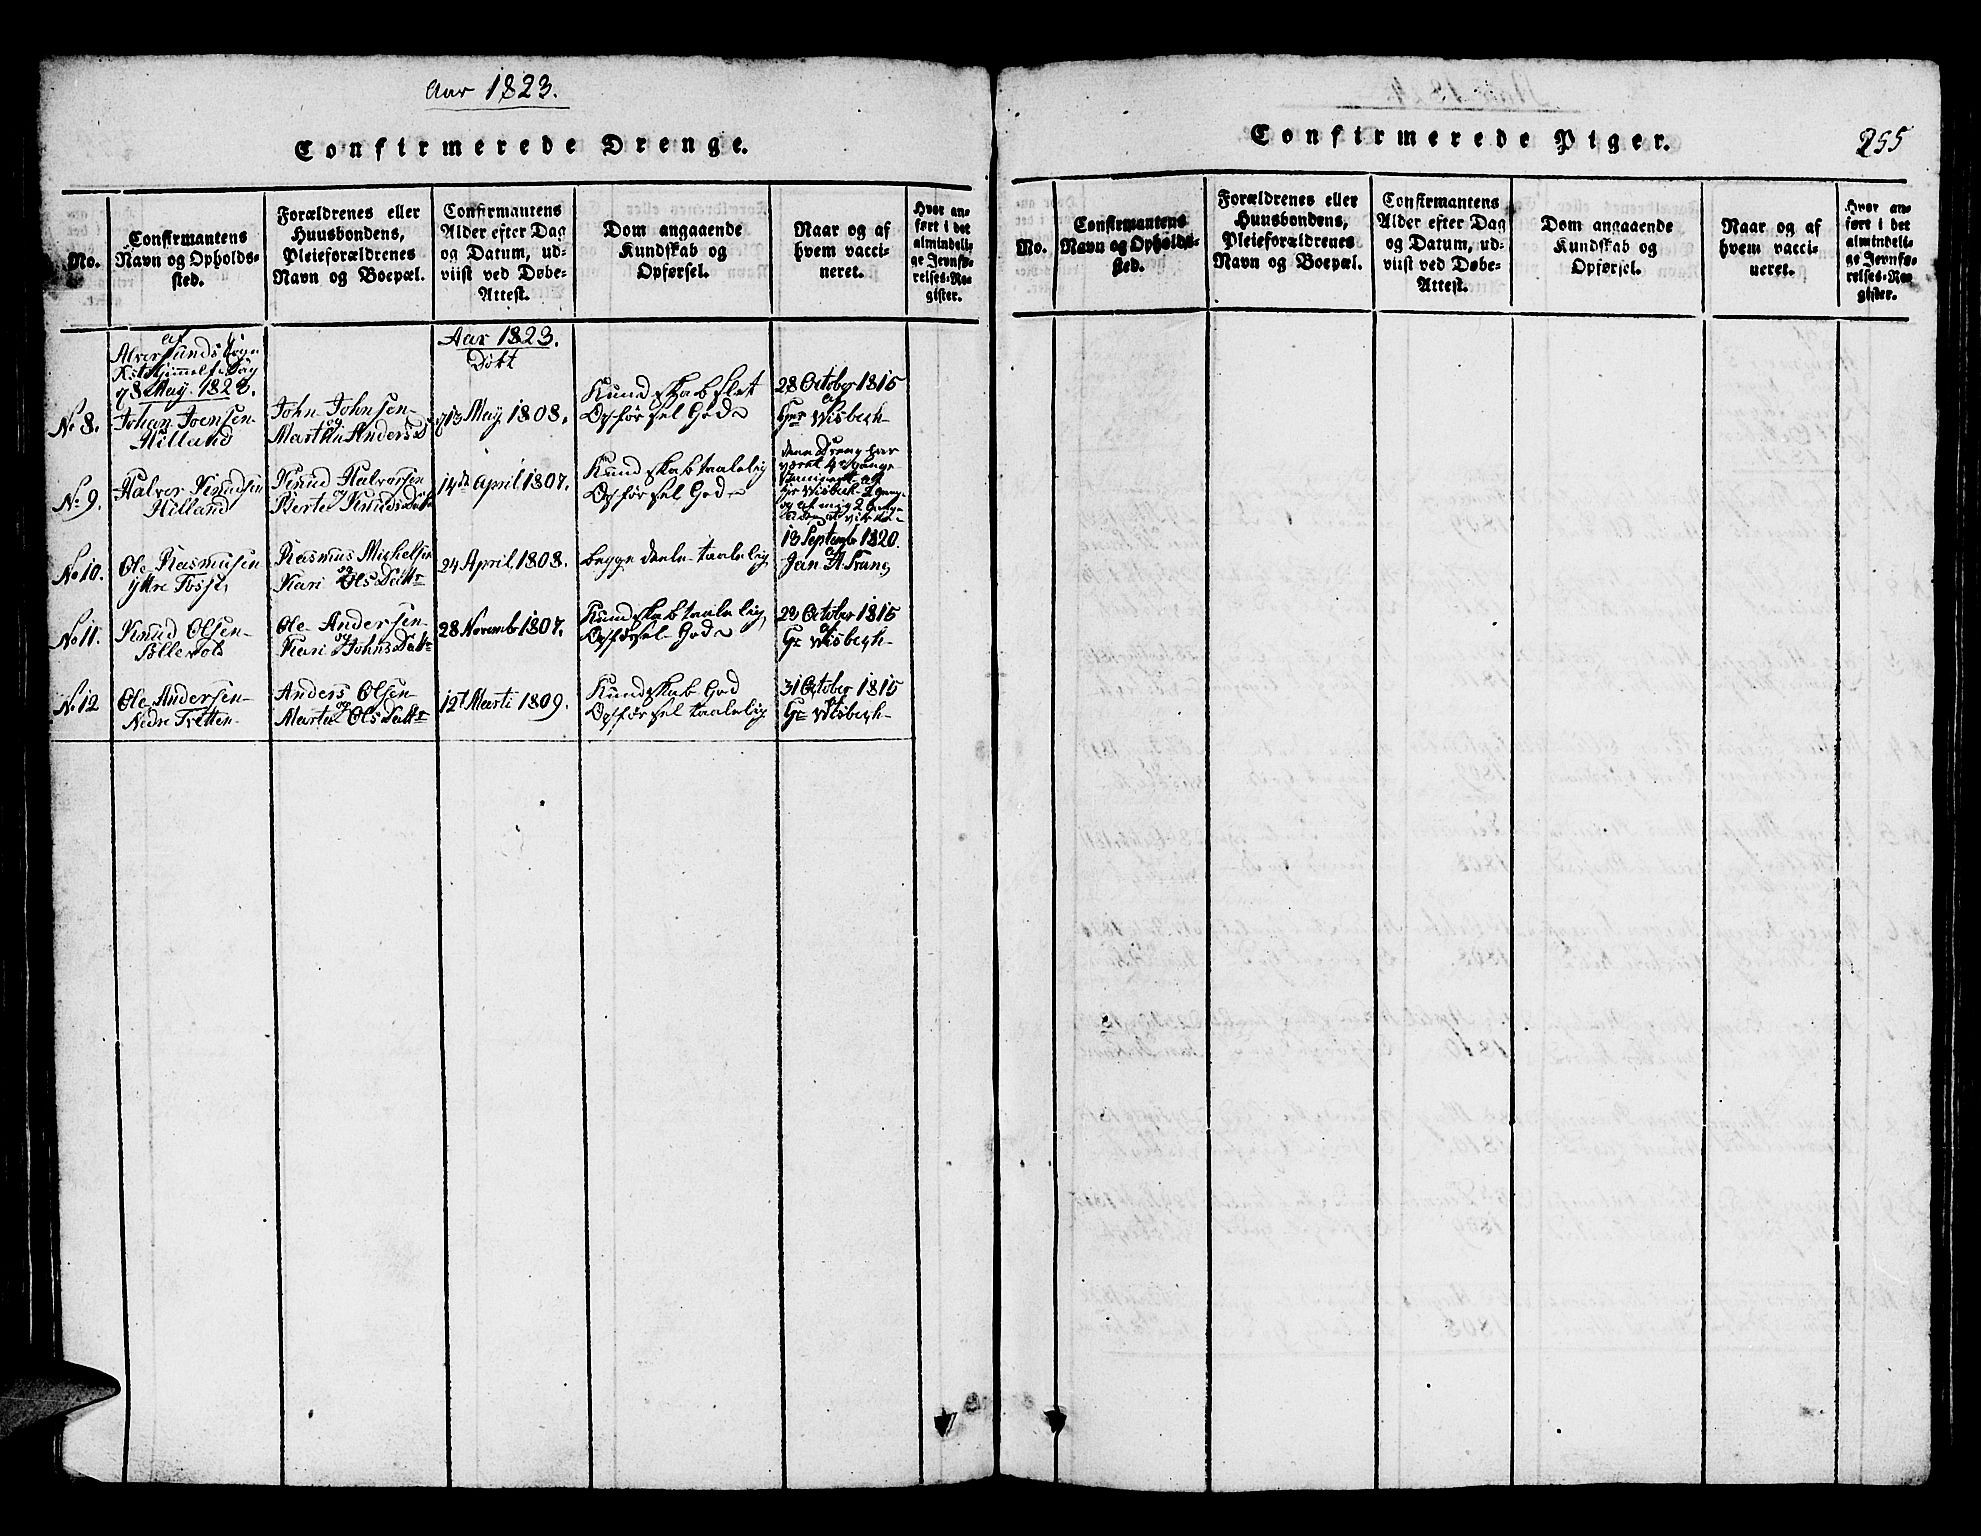 Aar 1823.
Confirmerede Drenge.
No.
Confirmantens
Navn og Opholds-
sted.
Forældrenes eller
Huusbondens,
Pleieforældrenes
Navn og Boepæl.
Confirmantens
Alder efter Dag
og Datum, ud-
viist ved Døbe-
Attest.
Dom angaaende
Kundskab og
Opførsel.
Naar og af
hvem vacci-
neret.
Hvor an-
ført i det
almindeli-
ge Jevnfø-
relses-Re-
gister.
af
Alversunds Sogn
May. 1823.
Aar 1823.
Døbt
No 8.
Johan Joensen
Hilland
John Johnsen
og
Martha Anders D
13 May 1808.
Kundskab slet
Opførsel Gode
28 October 1815
af
Hr Wisbech
No 9.
Halvor Knudsen
Hilland
Knud Halvorsen
og
Berte Knuds Datt
14de April 1807.
Kundskab taalelig
Opførsel Gode
denne Dreng har
været 4re Gange
vaccineret af
Hr Wisbech 2 Gange
og af mig 2 Gange
No 10.
Ole Rasmusen
Ytre Fosse
Rasmus Mickelsen
og
Kari Ols Datter
24 April 1808.
begge deele taalelig
13 Septembr 1820.
af
Jan A. Krane
No 11.
Knud Olsen
Ole Andersen
og
Kari Johns Datter
28 Novembr 1807.
Kundskab taalelig
Opførsel Gode
29 October 1815
af
Hr Wisbech
No 12
Ole Andersen
Nedre Tvetten
Anders Olsen
og
Marte Ols Datter
12t Marti 1809.
Kundskab God
Opførsel taalelig
31 October 1815
af
Hr Wisbech
Confirmerede Piger.
255
No.
Confirmantens
Navn og Opholds-
sted.
Forældrenes eller
Huusbondens,
Pleieforældrenes
Navn og Boepæl.
Confirmantens
Alder efter Dag
og Datum, ud-
viist ved Døbe-
Attest.
Dom angaaende
Kundskab og
Opførsel.
Naar og af
hvem vacci-
neret.
Hvor an-
ført i det
almindeli-
ge Jevnfø-
relses-Re-
gister.